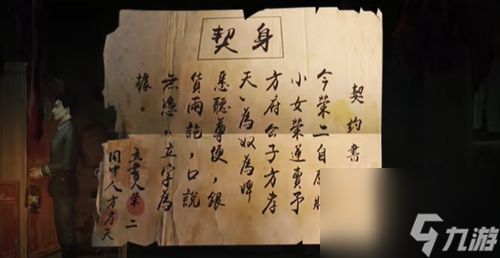 身契
契约書
今榮二自愿將
小女榮蓮賣予
方府公子方孝
天，為奴為婢
悉聽尊便，銀
貨兩訖，口說
無憑，立字為
據。
立書人榮二
同中人方孝天
九游